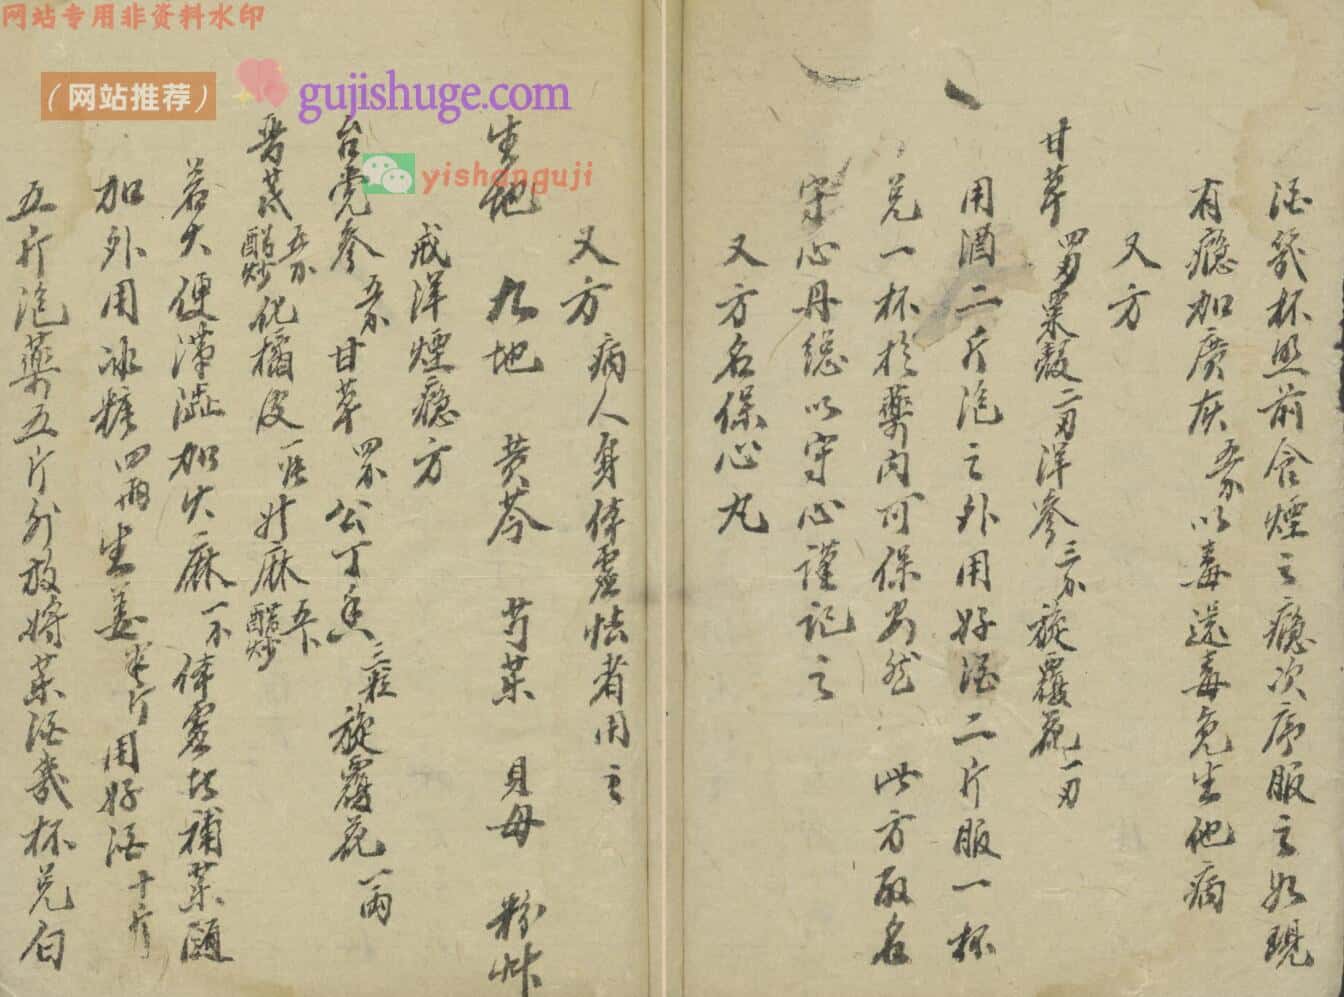 网站专用非资料水印
（网站推荐）
gujishuge.com
yishanguji
酒幾杯照前含煙之瘾次序服之如現
有瘾加廣灰以毒還毒免生他病
又方
甘草 粟殼 洋參 三 旋覆花一
用酒二斤泡之外用好酒二斤服一杯
兑一杯於藥内可保安然 此方取名
守心丹總以守心謹記之
又方名保心丸
又方 病人身体虚怯者用之
生地 九地 黄芩 芍藥 貝母 粉艸
戒洋煙瘾方
台党參 甘草 公丁香 三粒 旋覆花一两
晋芪 醋炒 化橘皮 一 升麻 醋炒
若大便澀加火麻一 体虚 補藥
加外用冰糖四两生姜半斤用好酒十斤
五斤泡藥五斤外放將藥酒幾杯兑白